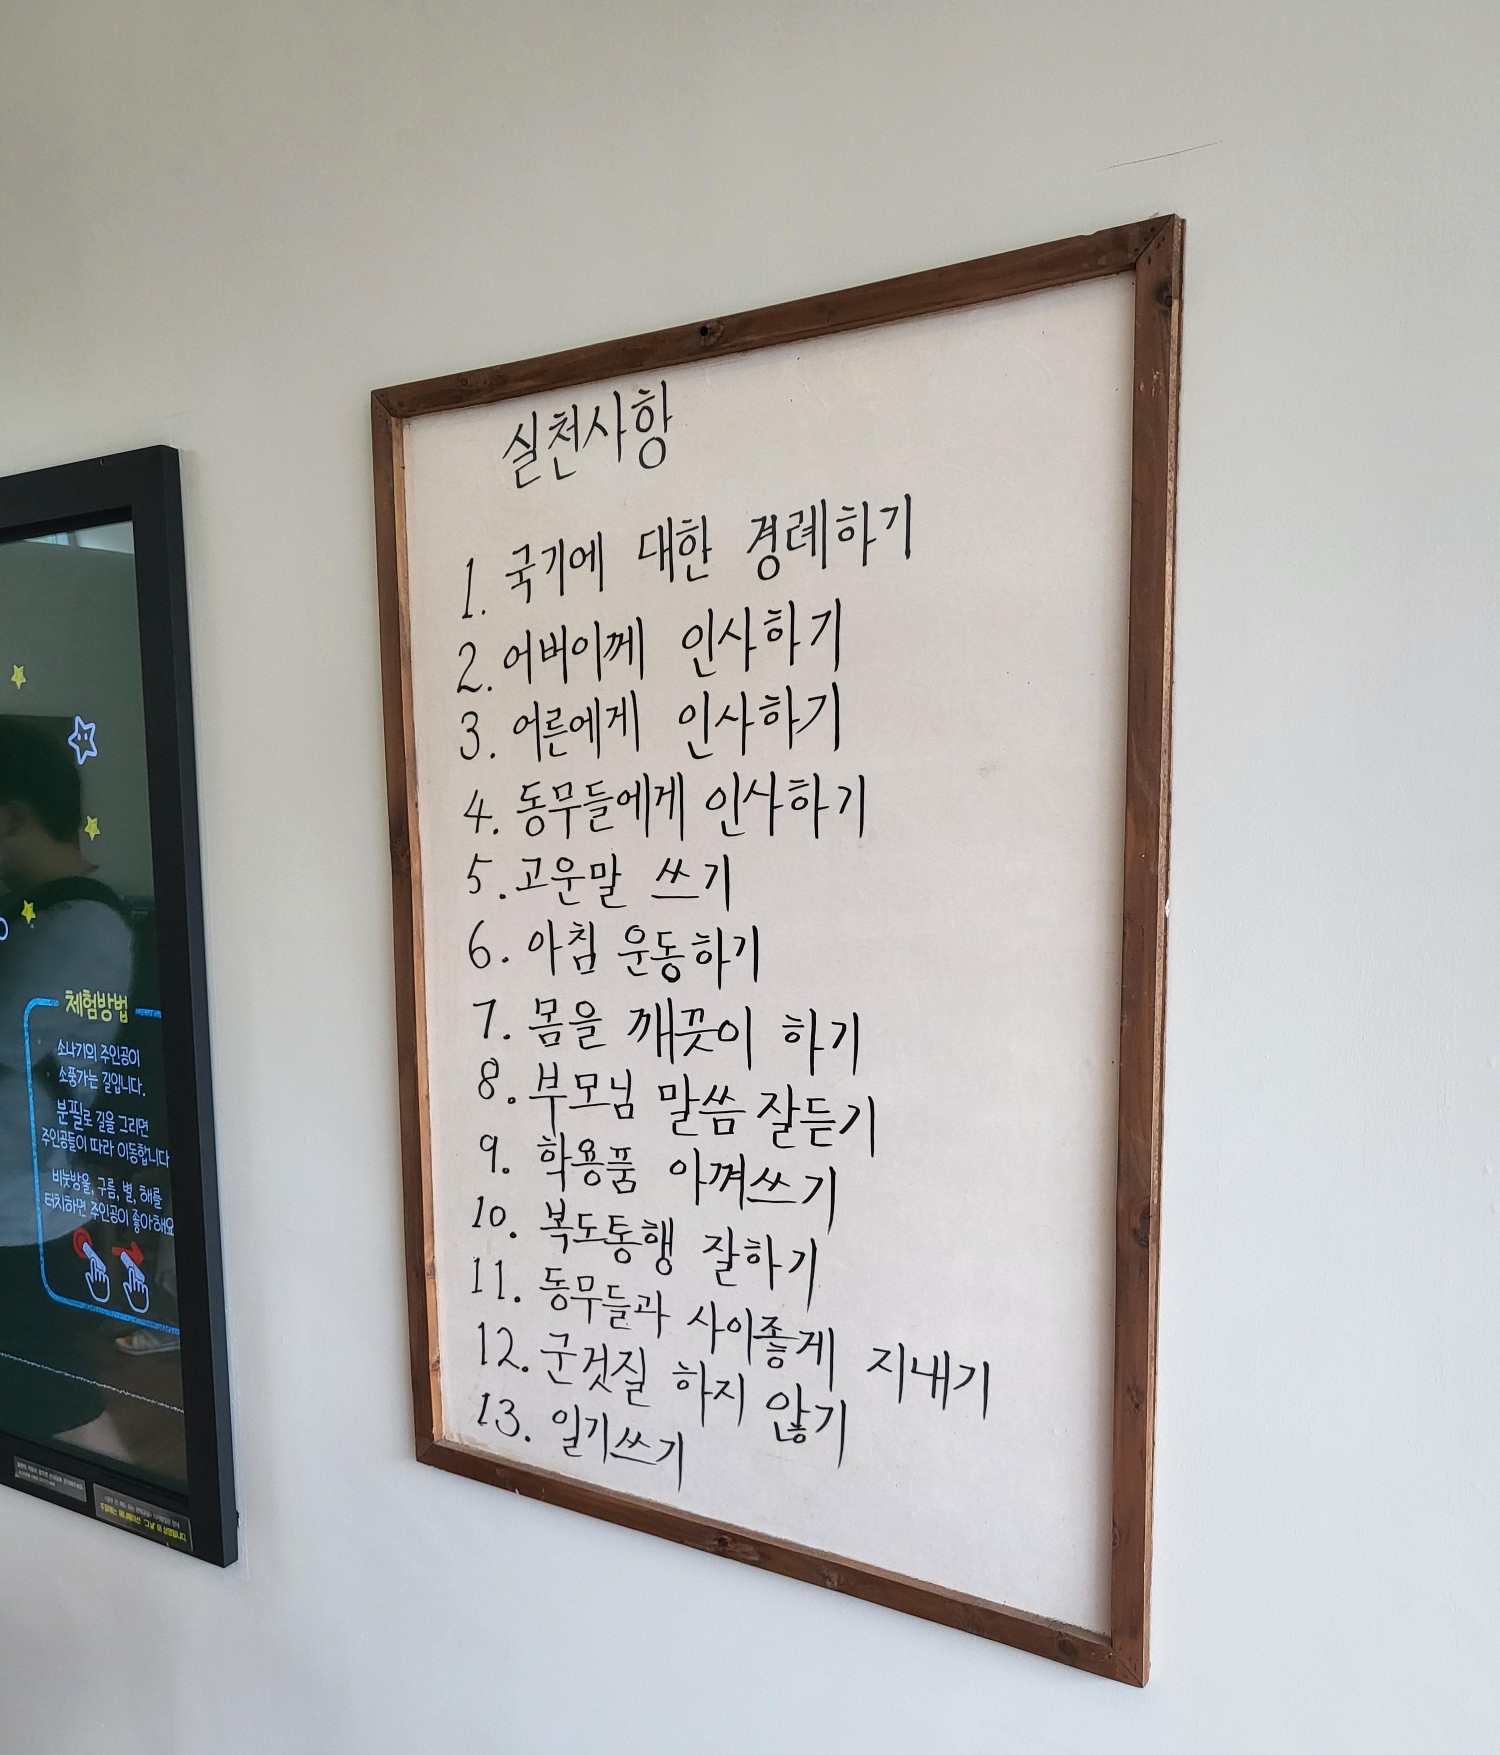 실천사항
1. 국기에 대한 경례하기
2. 어버이께 인사하기
3. 어른에게 인사하기
4. 동무들에게 인사하기
5. 고운말 쓰기
6. 아침 운동하기
7. 몸을 깨끗이 하기
8. 부모님 말씀 잘듣기
9. 학용품 아껴쓰기
10. 복도통행 잘하기
11. 동무들과 사이좋게 지내기
12. 군것질 하지 않기
13. 일기쓰기
체험방법
소나기의 주인공이
소풍가는 길입니다.
분필로 길을 그리면
주인공들이 따라 이동합니다
비눗방울, 구름, 별, 해를
터치하면 주인공이 좋아해요